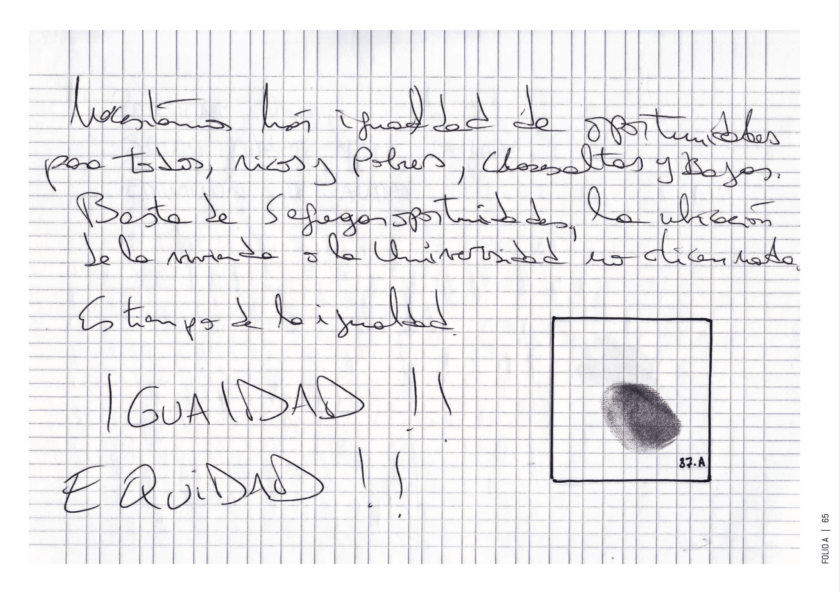 Necesitamos más igualdad de oportunidades
para todos, ricos y Pobres, clases altas y Bajas.
Basta de Segregar oportunidades, la ubicación
de la vivienda o la Universidad no dicen nada.
Es tiempo de la igualdad.
IGUALDAD !!
EQUiDAD !!
37.A
FOLIO A | 65